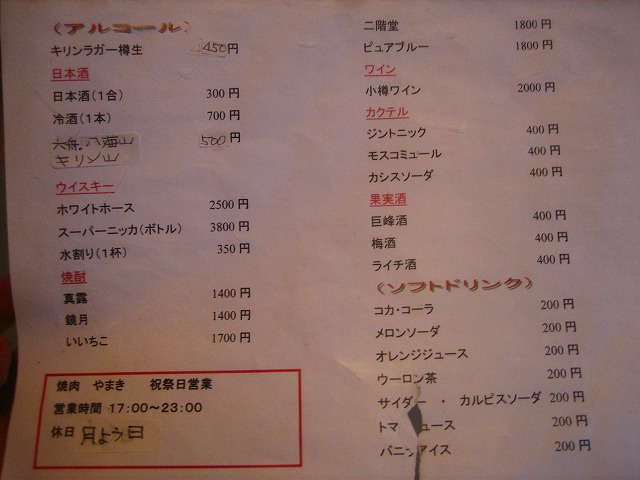 （アルコール）
キリンラガー樽生 450円
日本酒
日本酒（1合） 300円
冷酒（1本） 700円
八海山 500円
キリン山
ウイスキー
ホワイトホース 2500円
スーパーニッカ（ボトル） 3800円
水割り（1杯） 350円
焼酎
真露 1400円
鏡月 1400円
いいちこ 1700円
焼肉 やまき 祝祭日営業
営業時間 17:00～23:00
休日 月よう日
二階堂 1800円
ピュアブルー 1800円
ワイン
小樽ワイン 2000円
カクテル
ジントニック 400円
モスコミュール 400円
カシスソーダ 400円
果実酒
巨峰酒 400円
梅酒 400円
ライチ酒 400円
（ソフトドリンク）
コカ・コーラ 200円
メロンソーダ 200円
オレンジジュース 200円
ウーロン茶 200円
サイダー ・ カルピスソーダ 200円
トマ ュース 200円
バニラアイス 200円